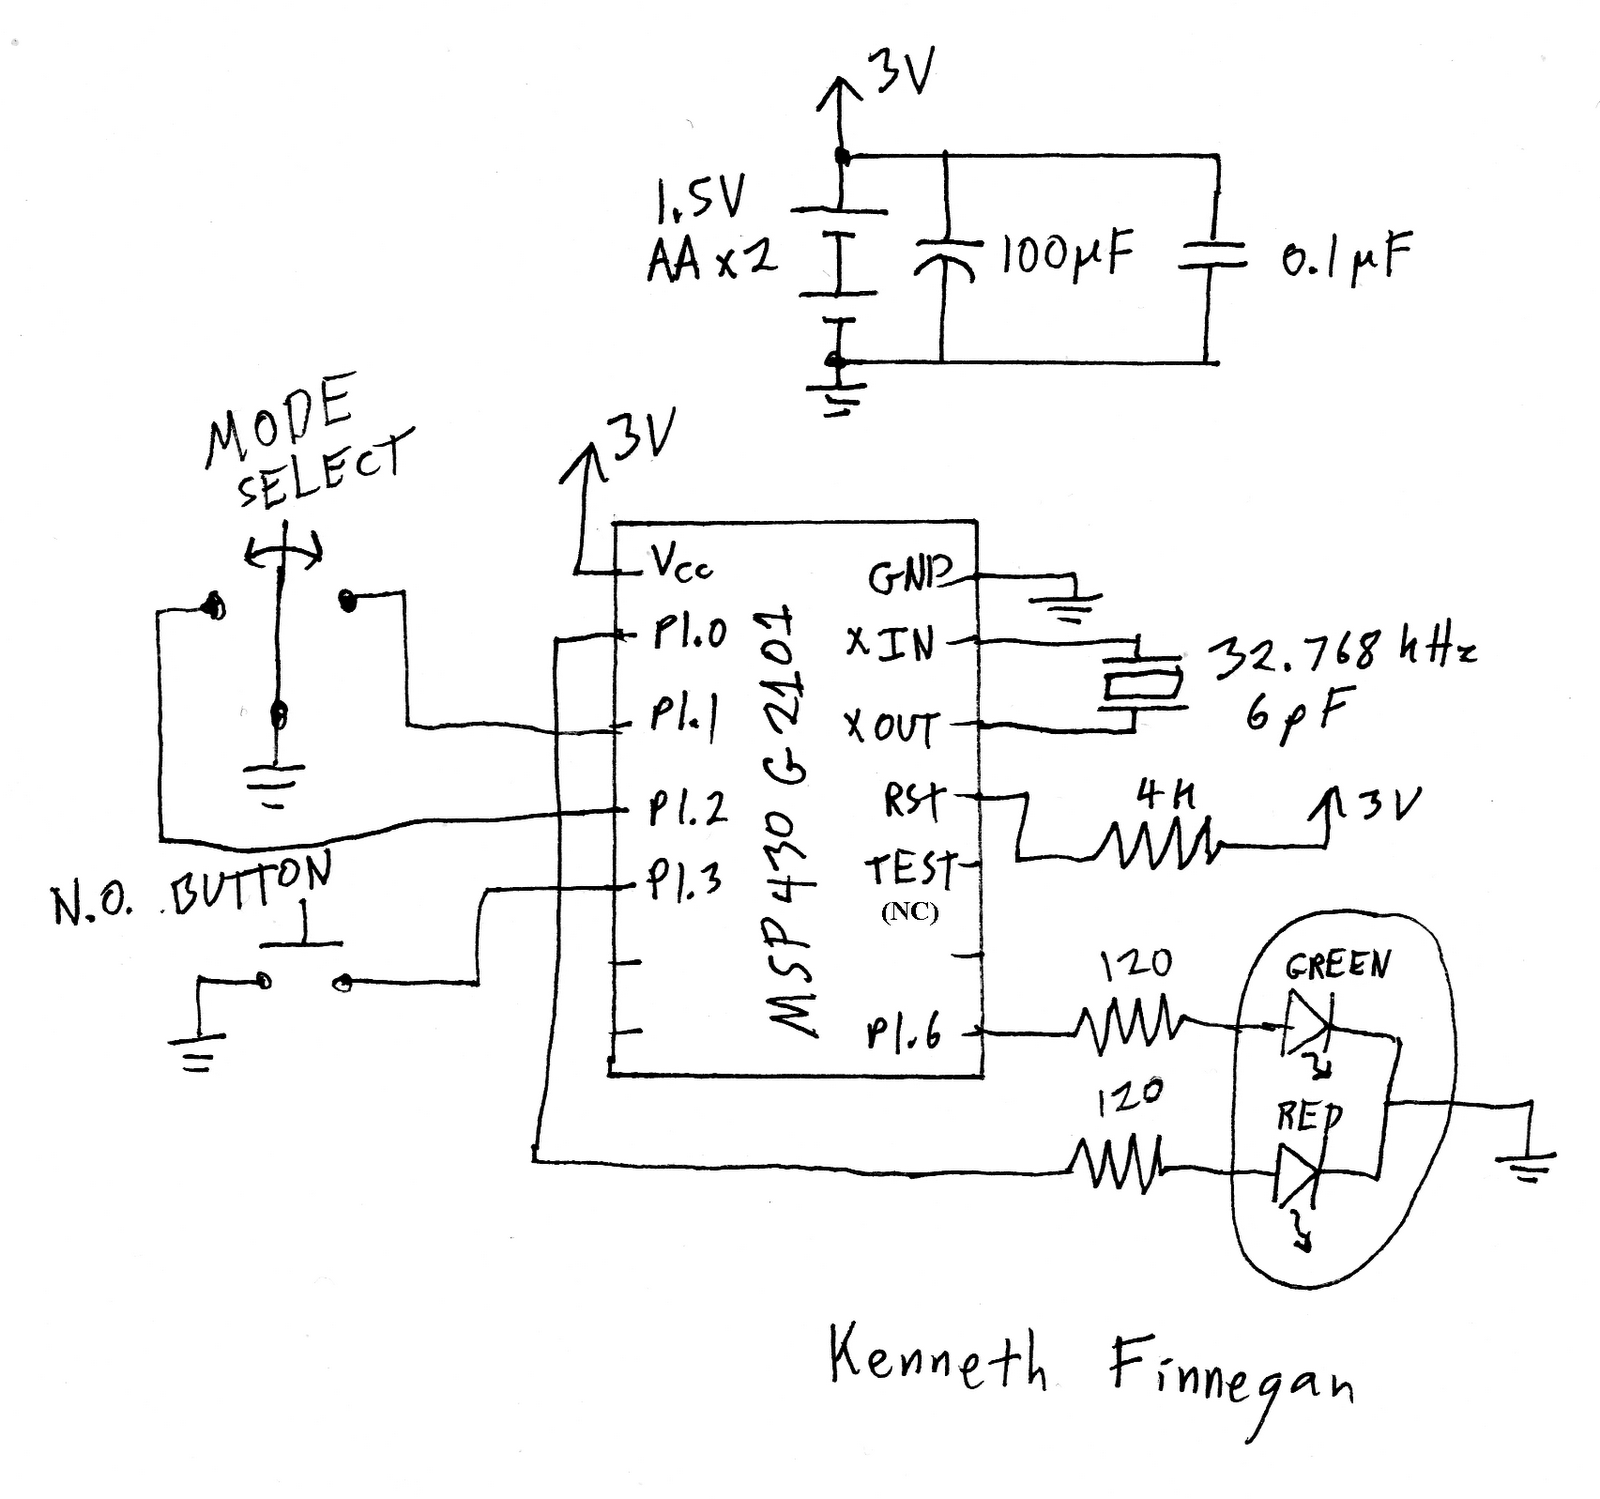 3V
1.5V
AA x 2
100µF
0.1µF
MODE
SELECT
3V
Vcc
GND
P1.0
XIN
32.768 kHz
6pF
P1.1
XOUT
MSP430G2101
P1.2
RST
4K
3V
P1.3
TEST
(NC)
N.O. BUTTON
120
GREEN
P1.6
120
RED
Kenneth Finnegan